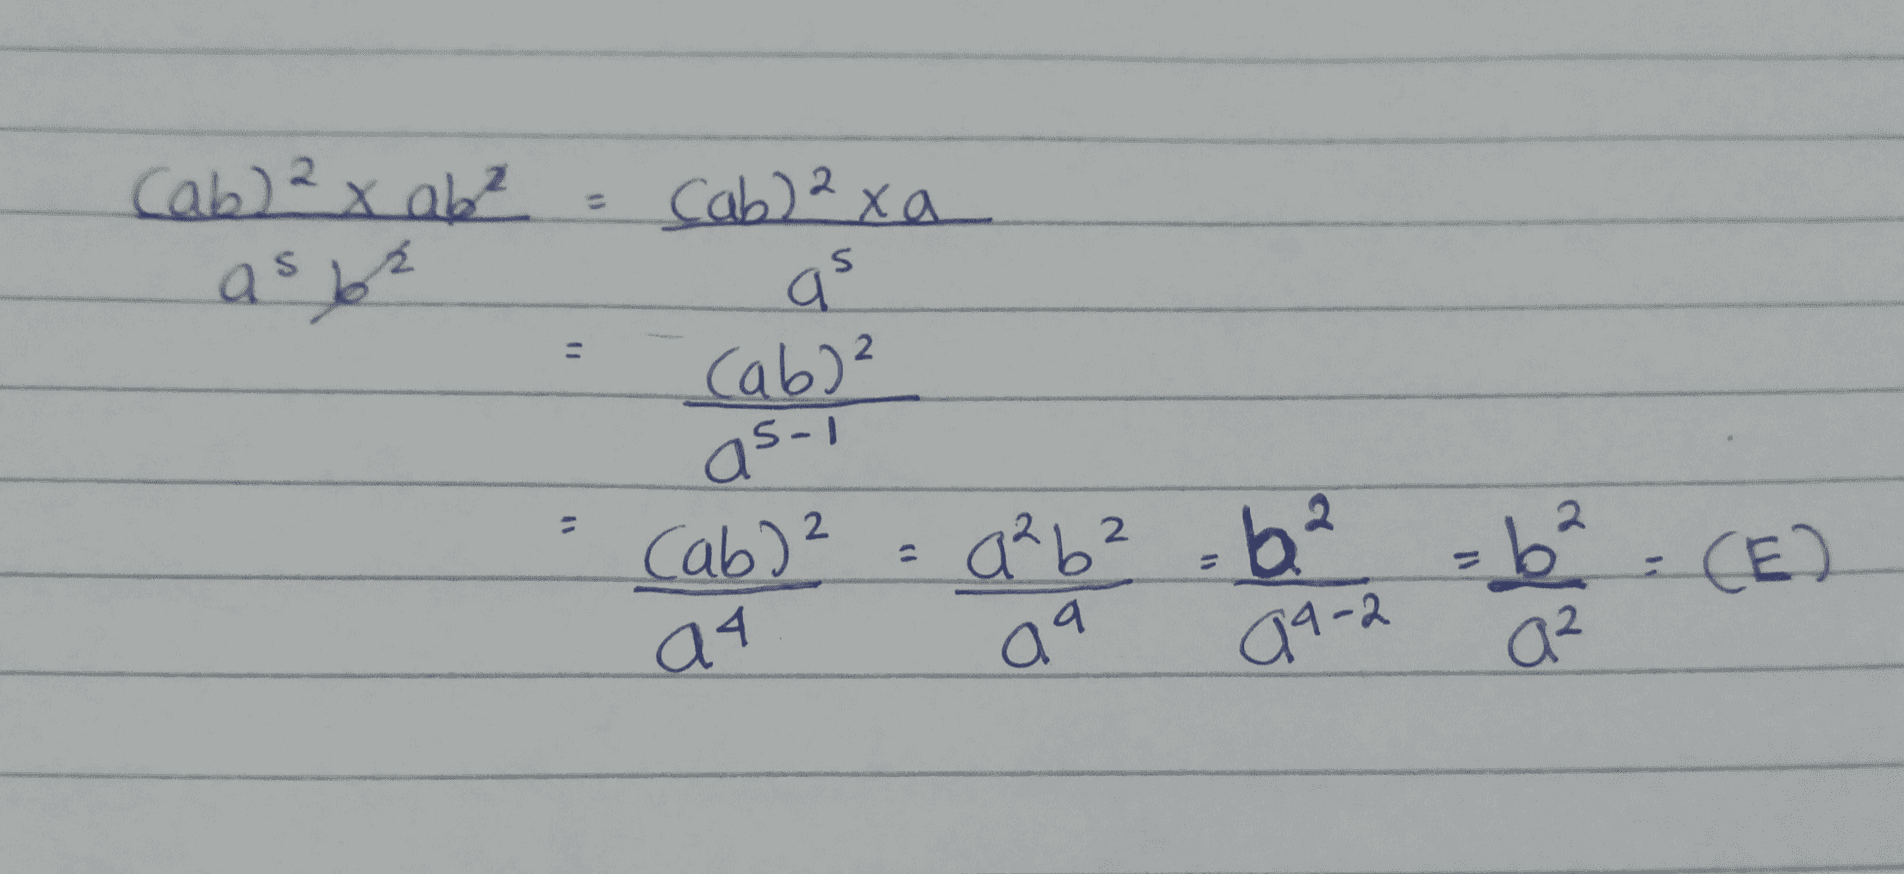 (ab)² x ab² / a⁵ b² = (ab)² x a / a⁵
= (ab)² / a⁵⁻¹
= (ab)² / a⁴ = a²b² / a⁴ = b² / a⁴⁻² = b² / a² = (E)